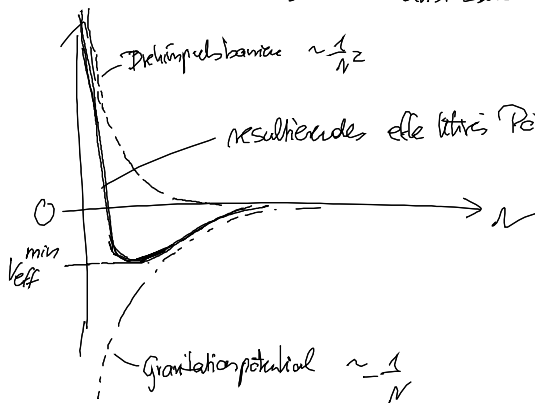 Drehimpulsbarriere ~ 1/r²
resultierendes effektives
0
r
V_eff^min
Gravitationspotential ~ -1/r